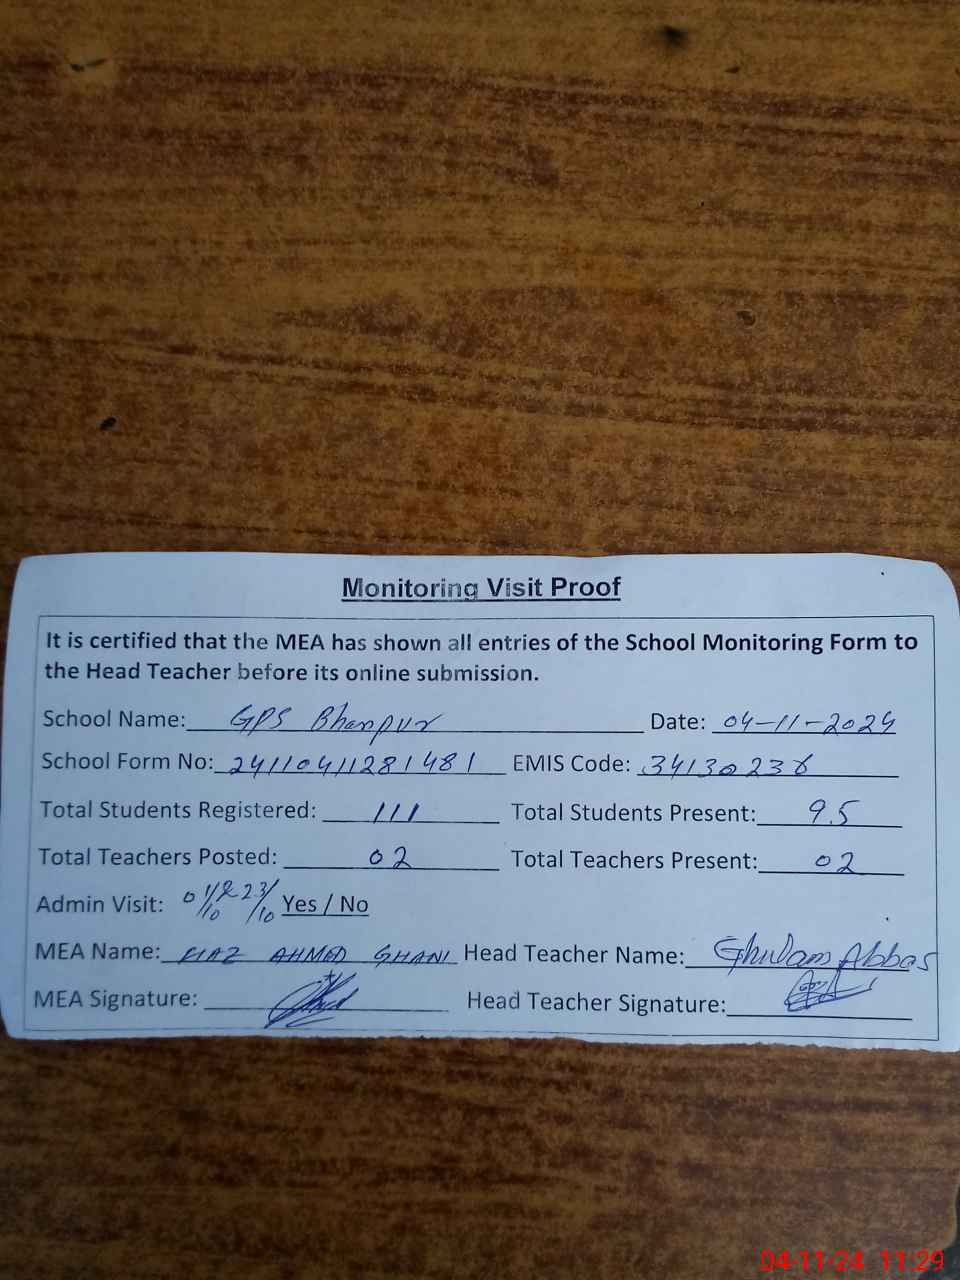 Monitoring Visit Proof
It is certified that the MEA has shown all entries of the School Monitoring Form to
the Head Teacher before its online submission.
School Name: GPS Bhanpur Date: 04-11-2024
School Form No: 24110411281481 EMIS Code: 34130236
Total Students Registered: 111 Total Students Present: 95
Total Teachers Posted: 02 Total Teachers Present: 02
Admin Visit: Yes / No
MEA Name: FIAZ AHMED GHANI Head Teacher Name: Ghulam Abbas
MEA Signature: Head Teacher Signature:
04-11-24 11:29